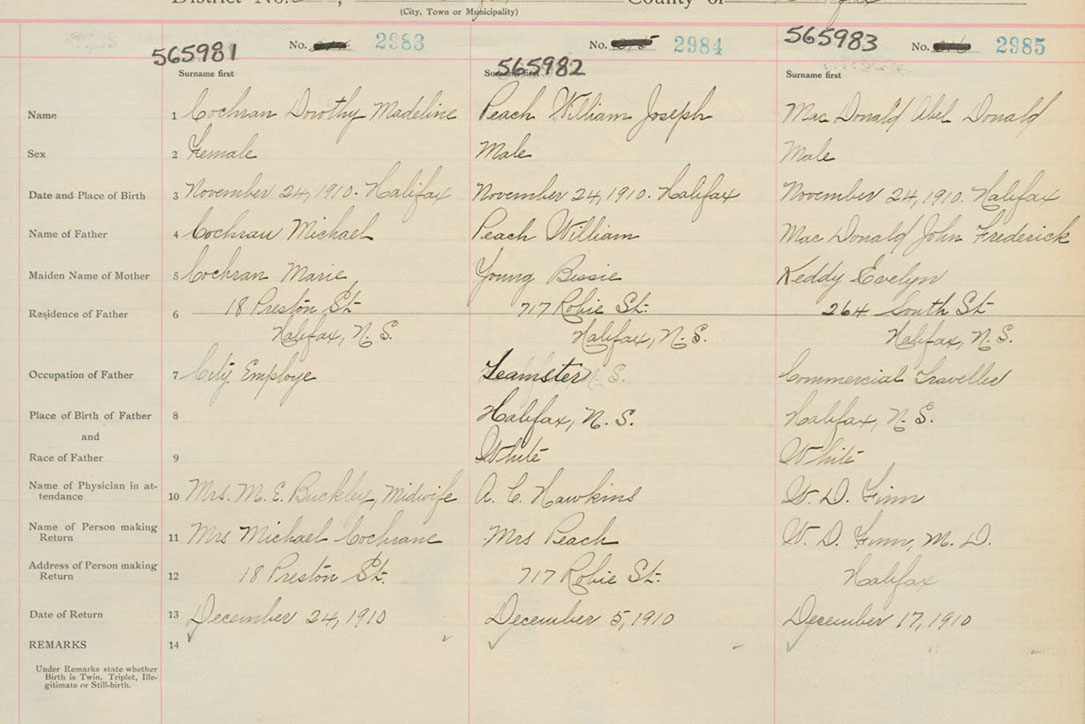 District No.
County of
(City, Town or Municipality)
565981 No. 2983
565982 No. 2984
565983 No. 2985
Surname first Surname first Surname first
Name 1 Cochran Dorothy Madeline Peach William Joseph Mac Donald Abel Donald
Sex 2 Female Male Male
Date and Place of Birth 3 November 24, 1910. Halifax November 24, 1910. Halifax November 24, 1910. Halifax
Name of Father 4 Cochrau Michael Peach William Mac Donald John Frederick
Maiden Name of Mother 5 Cochran Marie Young Bessie Keddy Evelyn
Residence of Father 6 18 Preston St. 717 Robie St. 264 South St
Halifax, N. S. Halifax, N. S. Halifax, N. S.
Occupation of Father 7 City Employe Teamster N. S. Commercial Traveller
Place of Birth of Father 8 Halifax, N. S. Halifax, N. S.
and
Race of Father 9 White White
Name of Physician in at-
tendance 10 Mrs. M. E. Buckley, Midwife A. C. Hawkins W. D. Finn
Name of Person making
Return 11 Mrs Michael Cochrane Mrs Peach W. D. Finn, M. D.
Address of Person making
Return 12 18 Preston St. 717 Robie St. Halifax
Date of Return 13 December 24, 1910 December 5, 1910 December 17, 1910
REMARKS 14
Under Remarks state whether
Birth is Twin, Triplet, Ille-
gitimate or Still-birth.